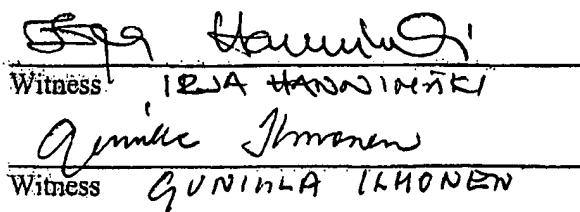 Irja Hannimäki
Witness IRJA HANNIMÄKI
Gunilla Ilmonen
Witness GUNILLA ILMONEN